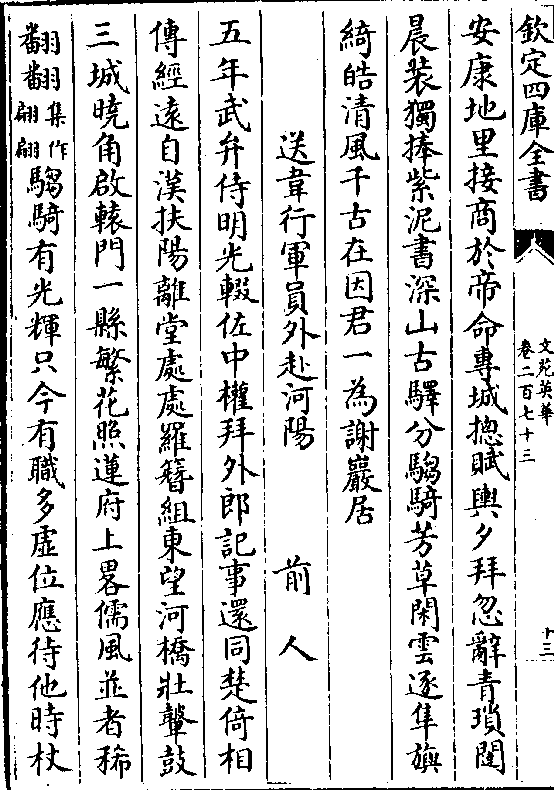 欽定四庫全書
文苑英華
卷二百七十三
十三
安康地里接商於帝命專城摠賦輿夕拜忽辭青瑣闥
晨裝獨捧紫泥書深山古驛分騶騎芳草閑雲逐隼旟
綺皓清風千古在因君一為謝巖居
送韋行軍員外赴河陽　前人
五年武弁侍明光輟佐中權拜外郎記事還同楚倚相
傳經遠自漢扶陽離堂處處羅簪組東望河橋壯鼙鼓
三城曉角啟轅門一縣繁花照蓮府上畧儒風並者稀
翩翩集作翩翩騶騎有光輝只今有職多虛位應待他時杖